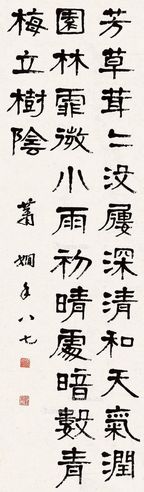 芳草茸々没屨深清和天氣潤
園林霏微小雨初晴處暗數青
梅立樹陰
蕭嫻年八七